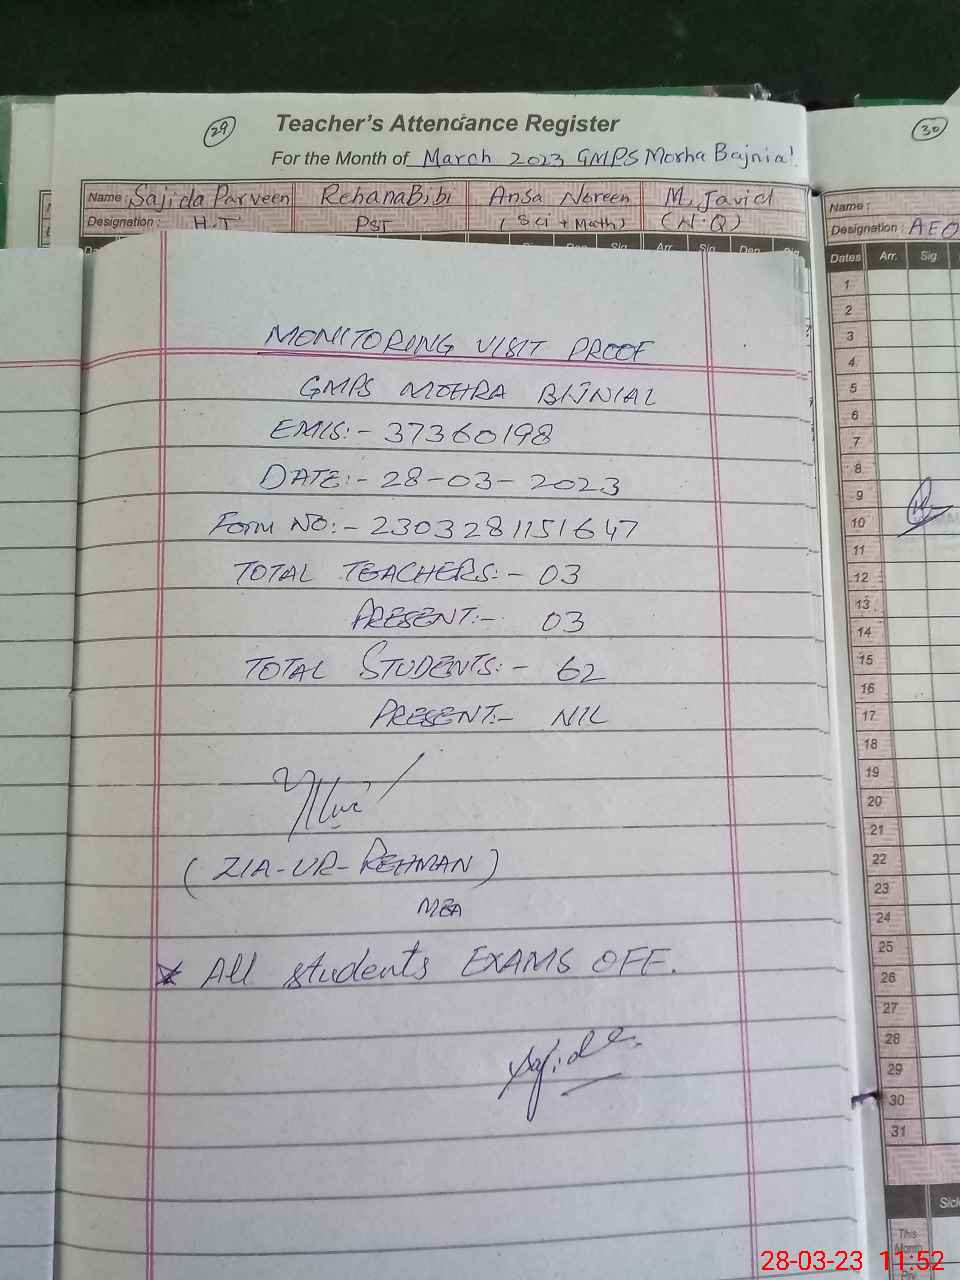 29
Teacher's Attendance Register
For the Month of March 2023 GMPS Morha Bajnial
Name: Sajida Parveen Rehana Bibi Ansa Noreen M. Javid
Designation: H.T PST (Sci + Math) (N.Q)
Sig Arr. Sig Dep.
MONITORING VISIT PROOF
GMPS MOHRA BIJNIAL
EMIS:- 37360198
DATE:- 28-03-2023
Form NO:- 2303281151647
TOTAL TEACHERS:- 03
PRESENT:- 03
TOTAL STUDENTS:- 62
PRESENT:- NIL
(ZIA-UR-REHMAN)
MEA
* All students EXAMS OFF.
Sajida
30
Name:
Designation: AEO
Dates Arr. Sig
1
2
3
4
5
6
7
8
9
10
11
12
13
14
15
16
17
18
19
20
21
22
23
24
25
26
27
28
29
30
31
This
Month
28-03-23 11:52